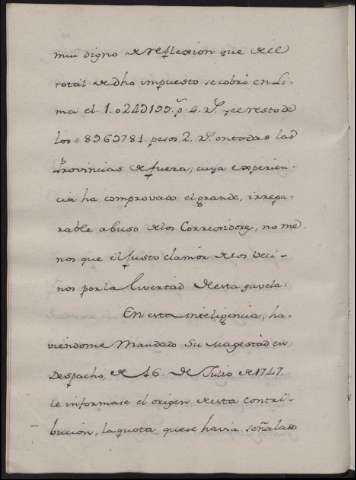 mui digno de reflexion que de el
total de dho impuesto se cobró en Li-
ma el 1.
los 8969781 pesos 2. rs. en todas las
Provincias de fuera; cuya experien-
cia ha comprovado el grande, irrepa-
rable abuso de los Corregidores, no me-
nos que el justo clamor de los Veci-
nos por la livertad de esta gavela.
En esta inteligencia, ha-
viendome Mandado Su Magestad en
Despacho de 16. de Julio de 1747.
le informase el origen de esta contri-
bucion, la quota, que se havia señalado